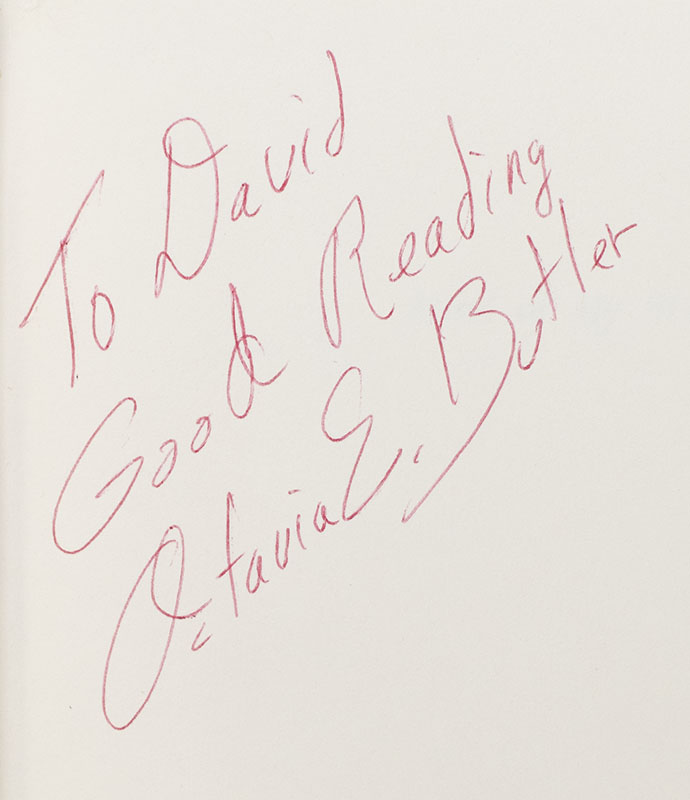 To David
Good Reading
Octavia E. Butler